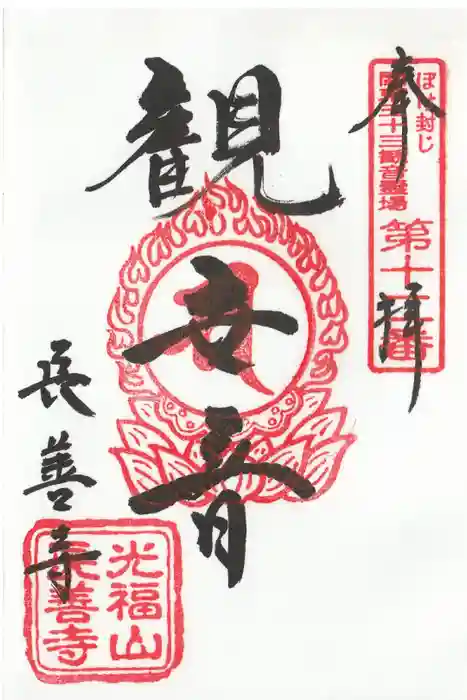 奉拝
ぼけ封じ
三十三観音霊場
第十 番
観世音
長善寺
光福山
長善寺